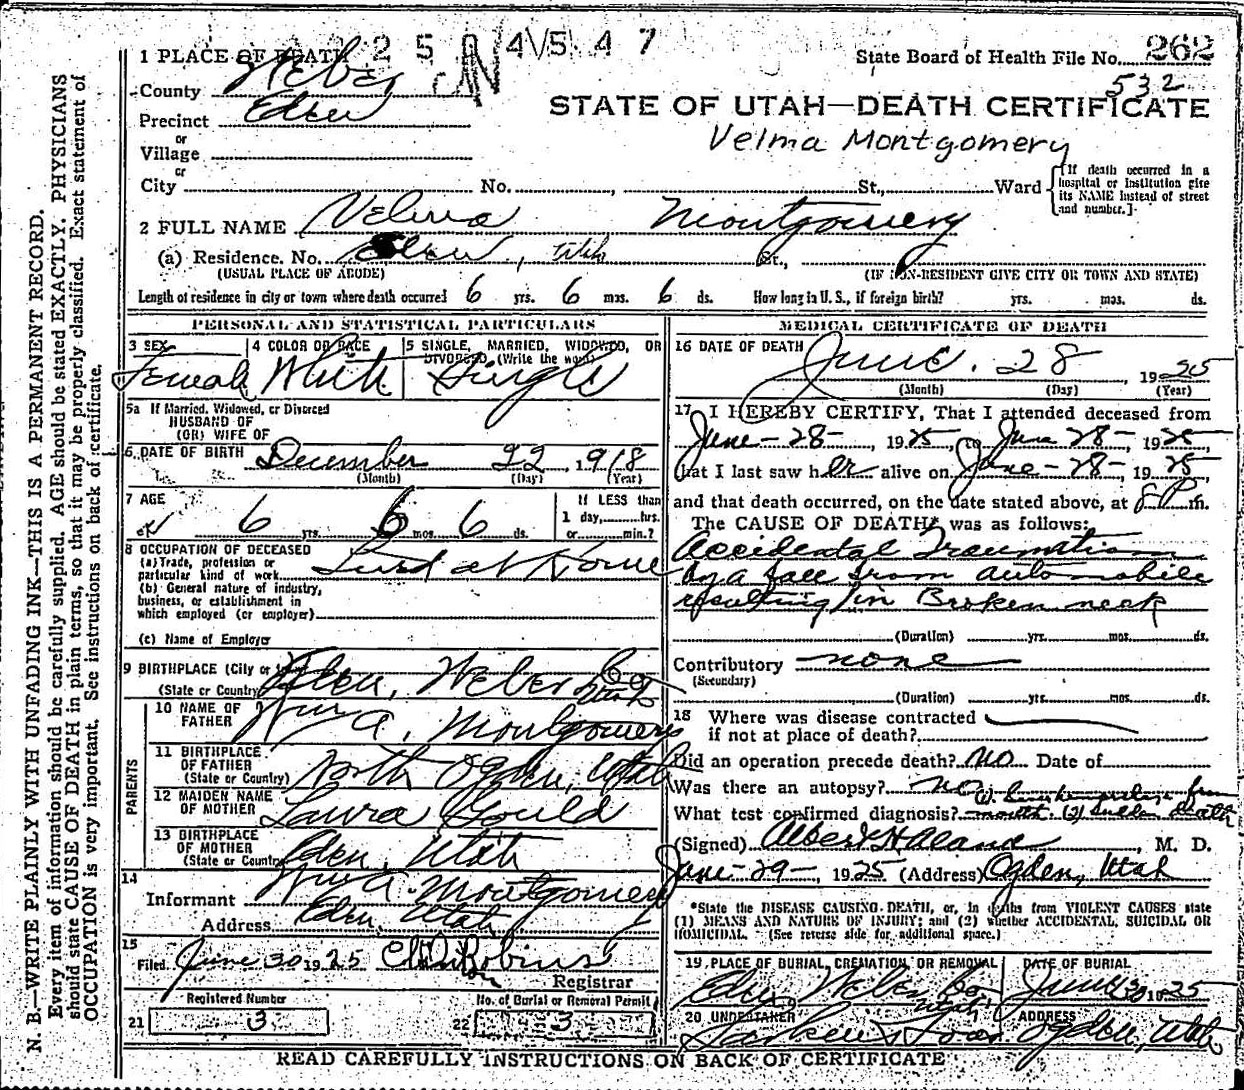 N. B.—WRITE PLAINLY WITH UNFADING INK—THIS IS A PERMANENT RECORD.
Every item of information should be carefully supplied. AGE should be stated EXACTLY. PHYSICIANS
should state CAUSE OF DEATH in plain terms, so that it may be properly classified. Exact statement of
OCCUPATION is very important. See instructions on back of certificate.
1 PLACE OF DEATH 2 5 4 5 4 7
State Board of Health File No. 262
532
County Weber
STATE OF UTAH—DEATH CERTIFICATE
Precinct Eden
Velma Montgomery
or
Village
or
City No. , St., Ward
{If death occurred in a
hospital or institution give
its NAME instead of street
and number.}
2 FULL NAME Velma Montgomery
(a) Residence. No. Eden, Utah St.,
(USUAL PLACE OF ABODE)
(IF NON-RESIDENT GIVE CITY OR TOWN AND STATE)
Length of residence in city or town where death occurred 6 yrs. 6 mos. 6 ds. How long in U. S., if foreign birth? yrs. mos. ds.
PERSONAL AND STATISTICAL PARTICULARS
3 SEX Female
4 COLOR OR RACE White
5 SINGLE, MARRIED, WIDOWED, OR
DIVORCED, (Write the word) Single
5a If Married, Widowed, or Divorced
HUSBAND OF
(OR) WIFE OF
6 DATE OF BIRTH December 22, 1918
(Month) (Day) (Year)
7 AGE 6 yrs. 6 mos. 6 ds.
If LESS than
1 day, hrs.
or min.?
8 OCCUPATION OF DECEASED
(a) Trade, profession or
particular kind of work Lived at Home
(b) General nature of industry,
business, or establishment in
which employed (or employer)
(c) Name of Employer
9 BIRTHPLACE (City or
(State or Country) Eden, Weber Co Utah
10 NAME OF
FATHER Wm A. Montgomery
PARENTS
11 BIRTHPLACE
OF FATHER
(State or Country) North Ogden, Utah
12 MAIDEN NAME
OF MOTHER Laura Gould
13 BIRTHPLACE
OF MOTHER
(State or Country) Eden, Utah
14
Informant Wm A. Montgomery
Address Eden, Utah
15
Filed June 30 1925 Robins
Registrar
Registered Number
21 3
No. of Burial or Removal Permit
22 3
MEDICAL CERTIFICATE OF DEATH
16 DATE OF DEATH June. 28, 1925
(Month) (Day) (Year)
17 I HEREBY CERTIFY, That I attended deceased from
June-28-, 1925, to June 28-1925,
that I last saw her alive on June-28-, 1925
and that death occurred, on the date stated above, at 8 P.m.
The CAUSE OF DEATH* was as follows:
Accidental Traumatism
by a fall from automobile
resulting in Broken neck
(Duration) yrs. mos. ds.
Contributory none
(Secondary)
(Duration) yrs. mos. ds.
18 Where was disease contracted
if not at place of death?
Did an operation precede death? No Date of
Was there an autopsy? No
What test confirmed diagnosis? (1) from mouth (2) Sudden Death
(Signed) Albert , M. D.
June-29-, 1925 (Address) Ogden, Utah
*State the DISEASE CAUSING DEATH, or, in deaths from VIOLENT CAUSES state
(1) MEANS AND NATURE OF INJURY; and (2) whether ACCIDENTAL, SUICIDAL OR
HOMICIDAL. (See reverse side for additional space.)
19 PLACE OF BURIAL, CREMATION OR REMOVAL Eden, Weber Co Utah
DATE OF BURIAL June 30 1925
20 UNDERTAKER
ADDRESS Ogden, Utah
READ CAREFULLY INSTRUCTIONS ON BACK OF CERTIFICATE